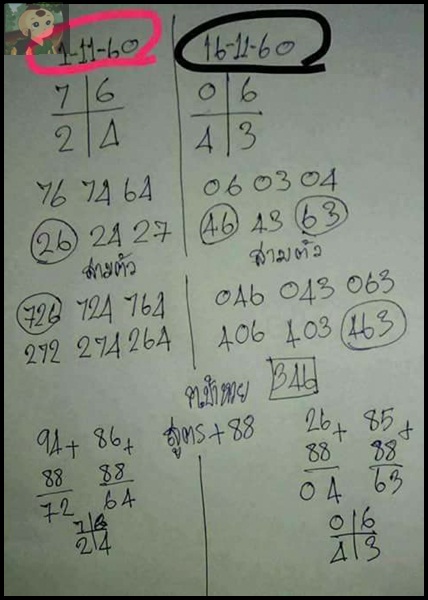 1-11-60
7 6
2 4
76 74 64
26 24 27
สามตัว
726 724 764
272 274 264
16-11-60
0 6
4 3
06 03 04
46 43 63
สามตัว
046 043 063
406 403 463
346
สูตร+88
94+ 86+
88 88
72 64
7 6
2 4
26+ 85+
88 88
04 63
0 6
4 3